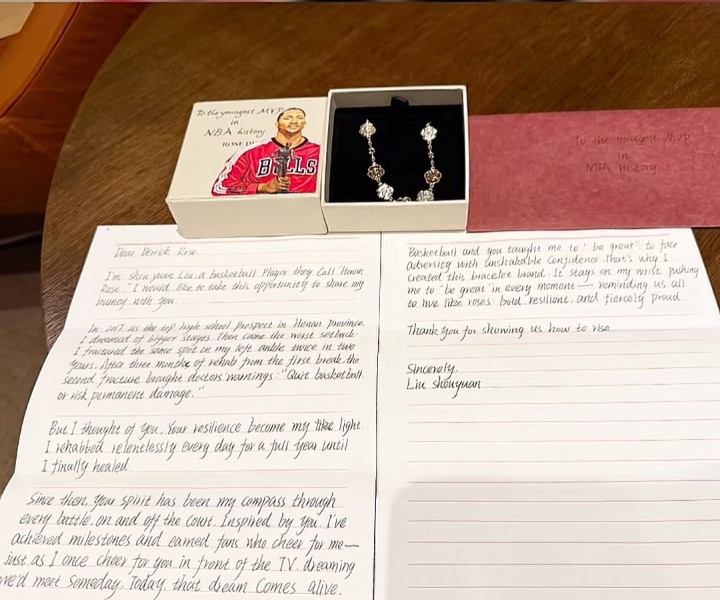 To the youngest MVP
in
NBA history
ROSE
BULLS
To the youngest MVP
in
NBA History
Dear Derrick Rose,
I'm shou yuan Liu, a basketball Player they Call "Henan
Rose." I would like to take this opportunity to share my
journey with you.
In 2017, as the top high school prospect in Henan province,
I dreamed of bigger stages. Then Came the worst setback:
I fractured the same spot on my left ankle twice in two
years. After three months of rehab from the first break, the
second fracture brought doctors' warnings: "Quit basketball
or risk permanent damage."
But I thought of you. Your resilience become my light.
I rehabbed relentlessly every day for a full year until
I finally healed
Since then, Your spirit has been my compass through
every battle, on and off the court. Inspired by you, I've
achieved milestones and earned fans who cheer for me—
just as I once cheer for you in front of the TV, dreaming
we'd meet Someday. Today, that dream Comes alive.
Basketball and you taught me to "be great": to face
adversity with unshakable Confidence. That's why I
Created this bracelet brand. It stays on my wrist, pushing
me to "be great" in every moment — reminding us all
to live like roses: bold, resilient, and fiercely proud.
Thank You for showing us how to rise.
Sincerely,
Liu shouyuan